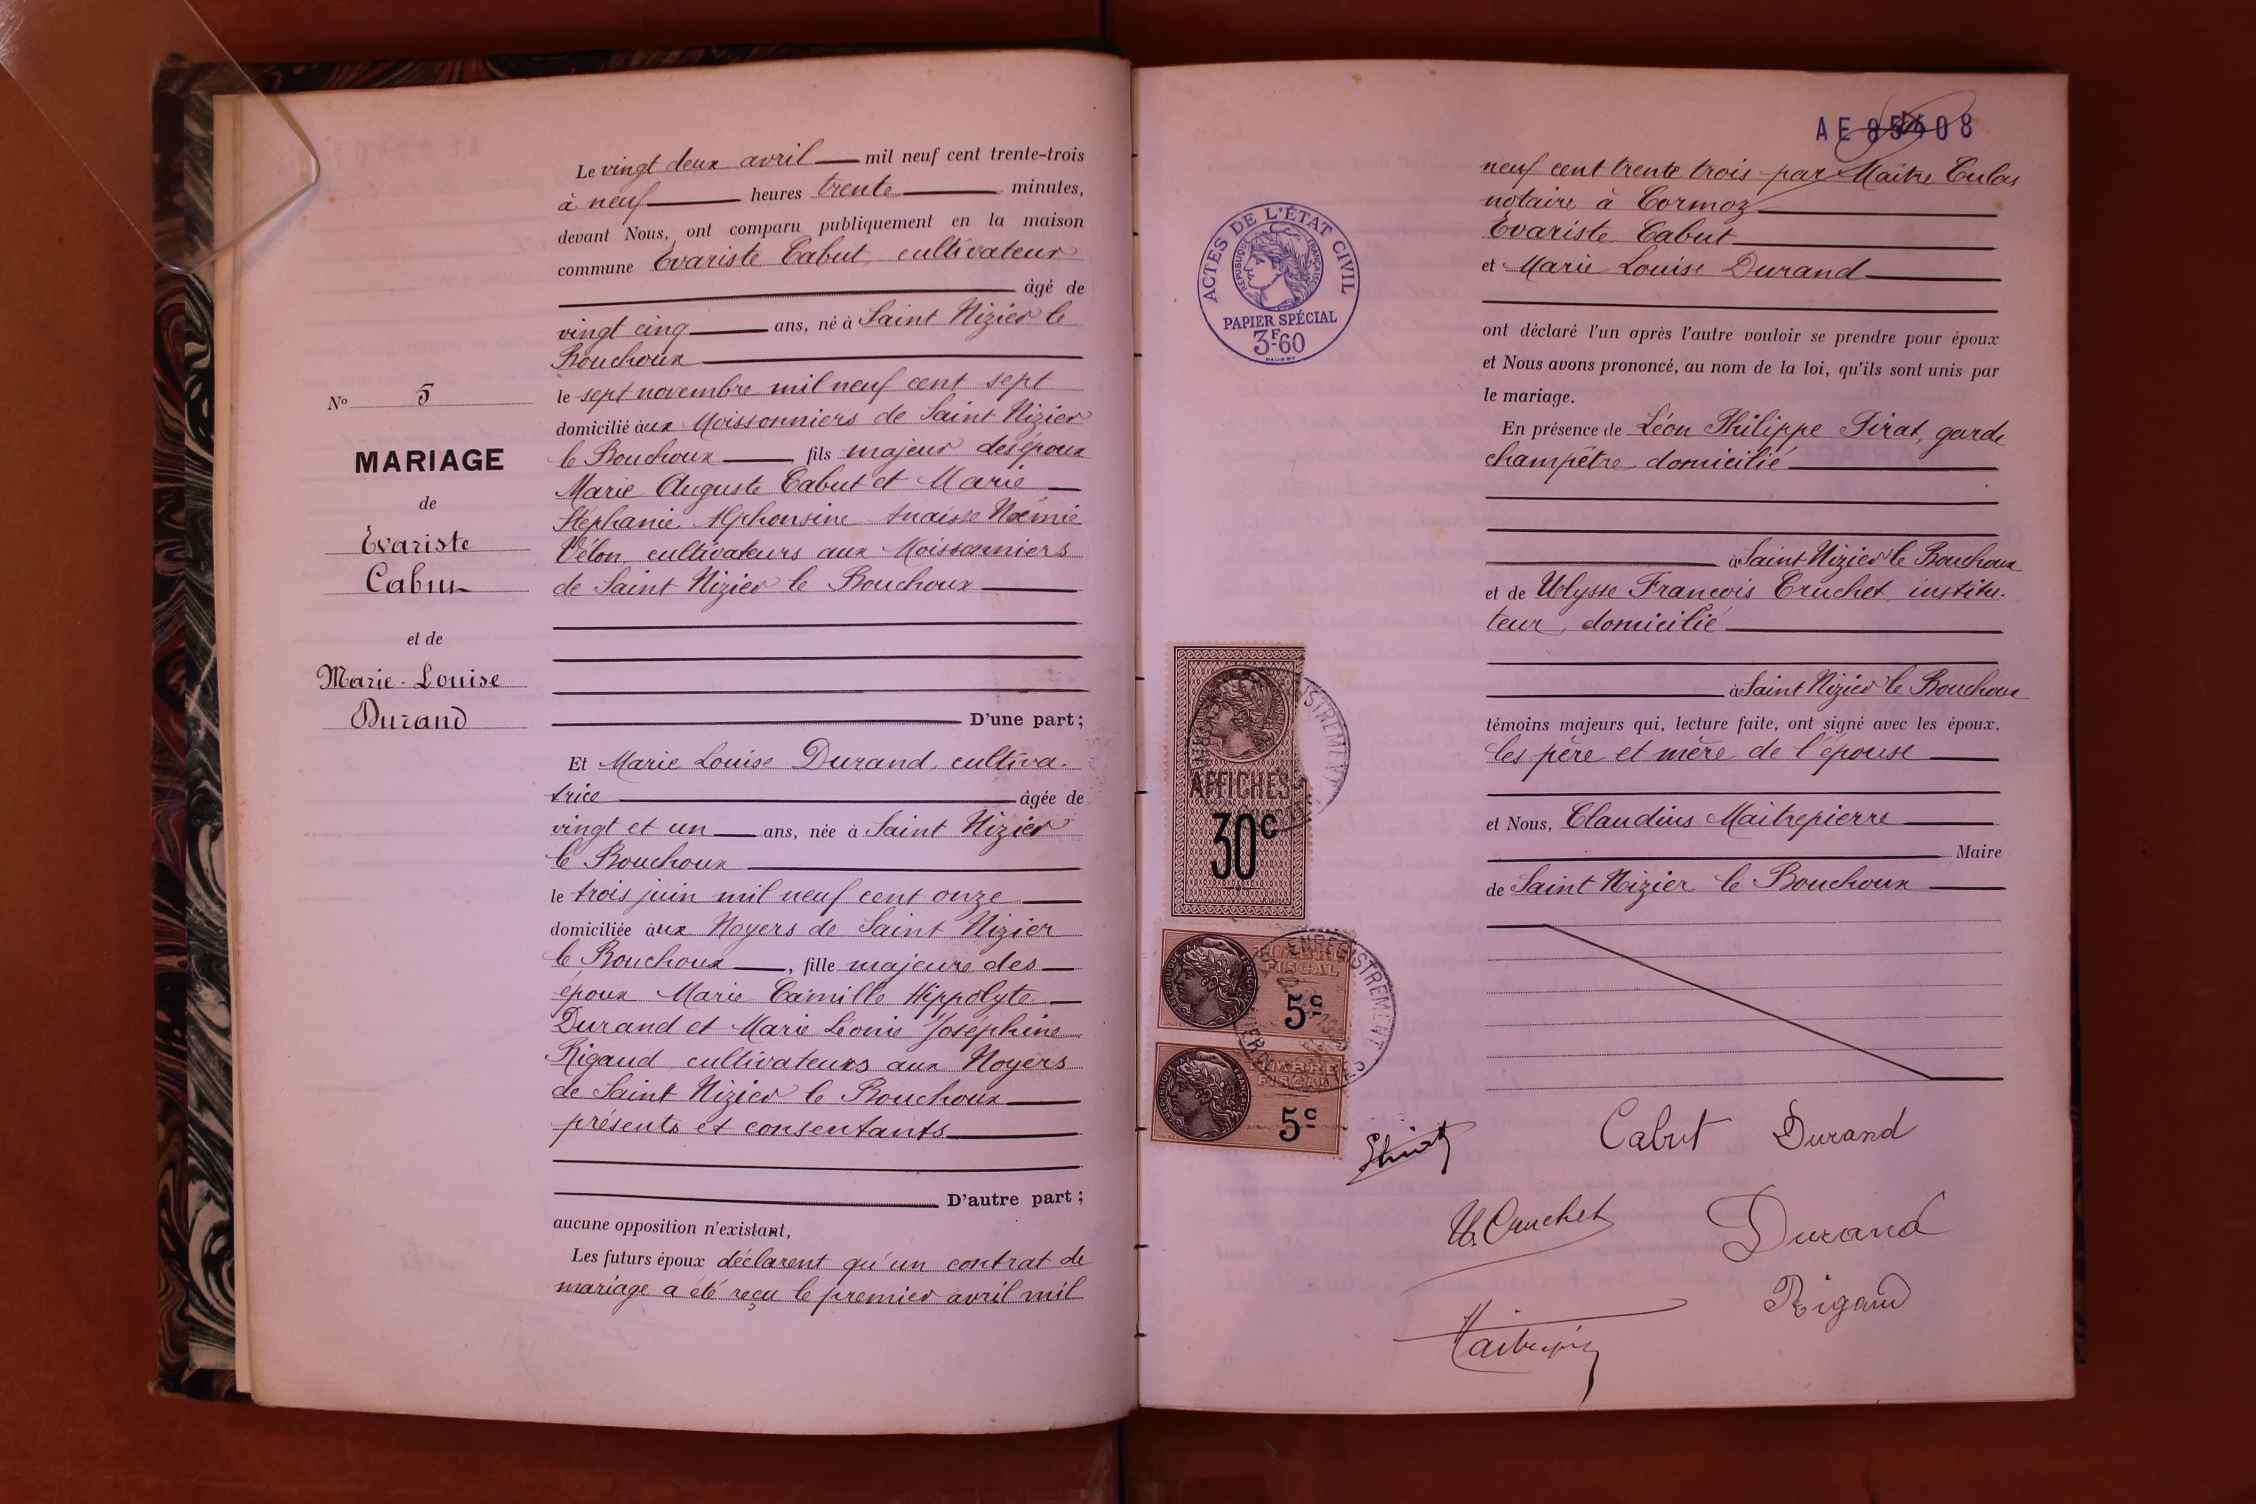 N° 5
MARIAGE
de
Evariste
Cabut
et de
Marie-Louise
Durand
Le vingt deux avril mil neuf cent trente-trois
à neuf heures trente minutes,
devant Nous, ont comparu publiquement en la maison
commune Evariste Cabut, cultivateur
âgé de
vingt cinq ans, né à Saint Nizier le
Bouchoux
le sept novembre mil neuf cent sept
domicilié aux Moissonniers de Saint Nizier
le Bouchoux fils majeur des époux
Marie Auguste Cabut et Marie
Stéphanie Alphonsine Anaïsse Noémie
Vélon, cultivateurs aux Moissonniers
de Saint Nizier le Bouchoux
D'une part;
Et Marie Louise Durand, cultiva-
trice âgée de
vingt et un ans, née à Saint Nizier
le Bouchoux
le trois juin mil neuf cent onze
domiciliée aux Noyers de Saint Nizier
le Bouchoux, fille majeure des
époux Marie Camille Hippolyte
Durand et Marie Léonie Joséphine
Rigaud cultivateurs aux Noyers
de Saint Nizier le Bouchoux
présents et consentants
D'autre part;
aucune opposition n'existant,
Les futurs époux déclarent qu'un contrat de
mariage a été reçu le premier avril mil
AE 85408
neuf cent trente trois par Maître
notaire à Cormoz
Evariste Cabut
et Marie Louise Durand
ont déclaré l'un après l'autre vouloir se prendre pour époux
et Nous avons prononcé, au nom de la loi, qu'ils sont unis par
le mariage.
En présence de Léon Philippe Pirat, garde
champêtre domicilié
à Saint Nizier le Bouchoux
et de Ulysse François Cruchet, institu-
teur, domicilié
à Saint Nizier le Bouchoux
témoins majeurs qui, lecture faite, ont signé avec les époux,
les père et mère de l'épouse
et Nous, Claudius Maitrepierre
Maire
de Saint Nizier le Bouchoux
ACTES DE L'ÉTAT CIVIL
RÉPUBLIQUE FRANÇAISE
PAPIER SPÉCIAL
3F60
AFFICHES
30c
ENREGISTREMENT
TIMBRE
FISCAL
5c
TIMBRE
FISCAL
5c
Cabut Durand
U. Cruchet
Durand
Rigaud